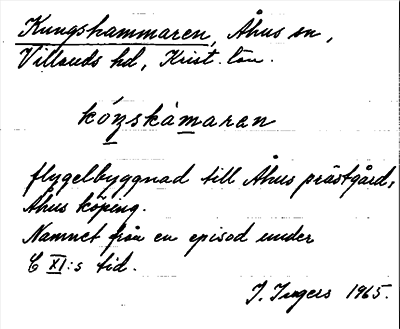 Kungshammaren, Åhus sn,
Villands hd, Krist. län.
kóŋskàmaran
flygelbyggnad till Åhus prästgård,
Åhus köping.
Namnet från en episod under
C XI:s tid.
I. Ingers 1965.